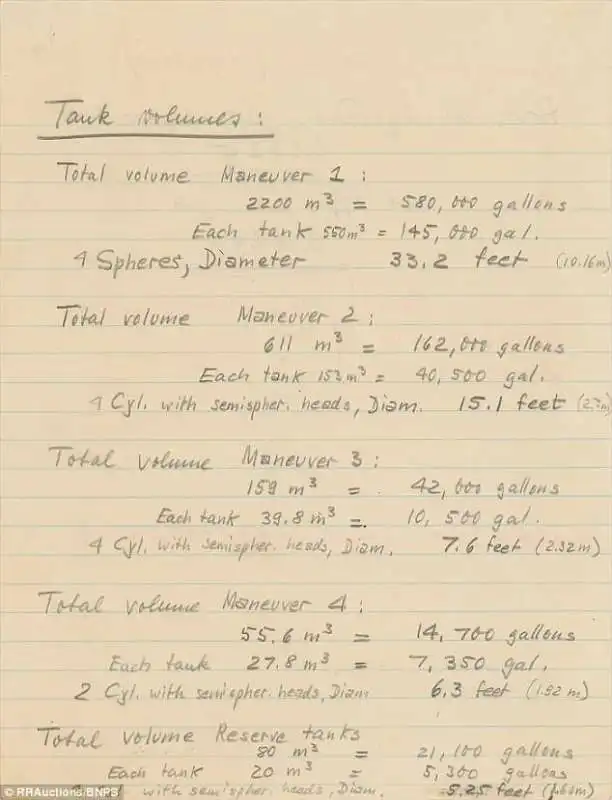 Tank volumes:
Total volume Maneuver 1:
2200 m³ = 580,000 gallons
Each tank 550m³ = 145,000 gal.
4 Spheres, Diameter 33.2 feet (10.16m)
Total volume Maneuver 2:
611 m³ = 162,000 gallons
Each tank 153m³ = 40,500 gal.
4 Cyl. with semispher. heads, Diam. 15.1 feet
Total volume Maneuver 3:
159 m³ = 42,000 gallons
Each tank 39.8 m³ = 10,500 gal.
4 Cyl. with semispher. heads, Diam. 7.6 feet (2.32m)
Total volume Maneuver 4:
55.6 m³ = 14,700 gallons
Each tank 27.8 m³ = 7,350 gal.
2 Cyl. with semispher. heads, Diam 6.3 feet (1.92 m)
Total volume Reserve tanks
80 m³ = 21,100 gallons
Each tank 20 m³ = 5,300 gallons
with semispher. heads, Diam. 5.25 feet (1.60m)
©RRAuctions/BNPS